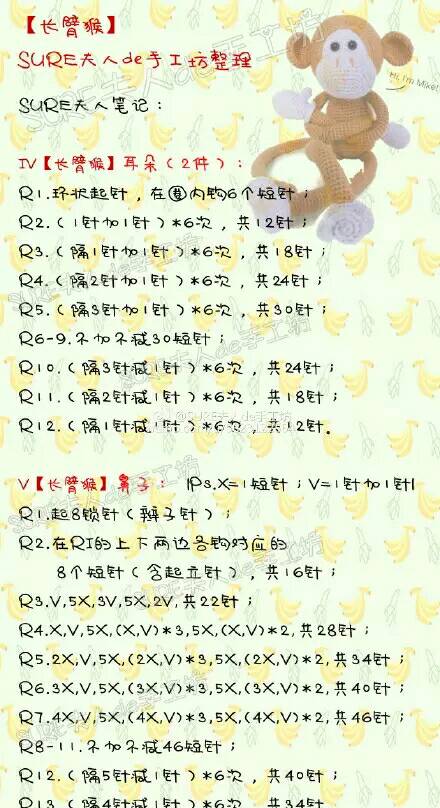 【长臂猴】
SURE夫人de手工坊整理
Hi, I'm Mike!
SURE夫人笔记：
IV【长臂猴】耳朵（2件）：
R1.环状起针，在圈内钩6个短针；
R2.（1针加1针）*6次，共12针；
R3.（隔1针加1针）*6次，共18针；
R4.（隔2针加1针）*6次，共24针；
R5.（隔3针加1针）*6次，共30针；
R6-9.不加不减30短针；
R10.（隔3针减1针）*6次，共24针；
R11.（隔2针减1针）*6次，共18针；
@SURE夫人de手工坊
R12.（隔1针减1针）*6次，共12针。
V【长臂猴】鼻子： |Ps.X=1短针；V=1针加1针|
R1.起8锁针（辫子针）；
R2.在R1的上下两边各钩对应的
8个短针（含起立针），共16针；
R3.V,5X,3V,5X,2V,共22针；
R4.X,V,5X,(X,V)*3,5X,(X,V)*2,共28针；
R5.2X,V,5X,(2X,V)*3,5X,(2X,V)*2,共34针；
R6.3X,V,5X,(3X,V)*3,5X,(3X,V)*2,共40针；
R7.4X,V,5X,(4X,V)*3,5X,(4X,V)*2,共46针；
R8-11.不加不减46短针；
R12.（隔5针减1针）*6次，共40针；
R13.（隔4针减1针）*6次，共34针